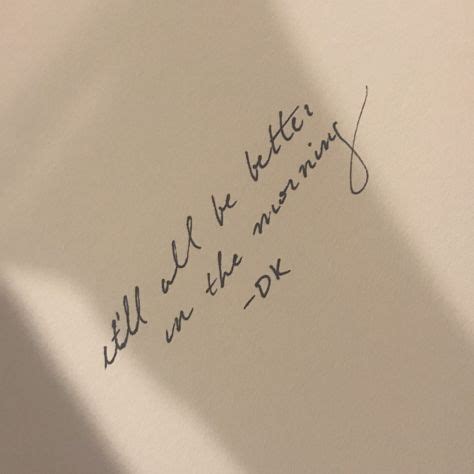 it'll all be better
in the morning
-DK